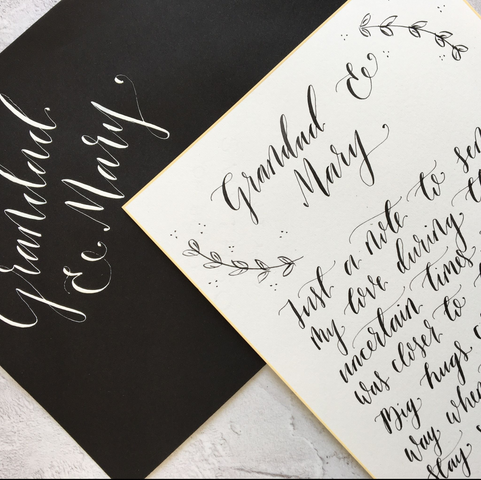 Grandad
& Mary
Grandad &
Mary
Just a note to
my love during
uncertain times
was closer to
Big hugs
way
stay